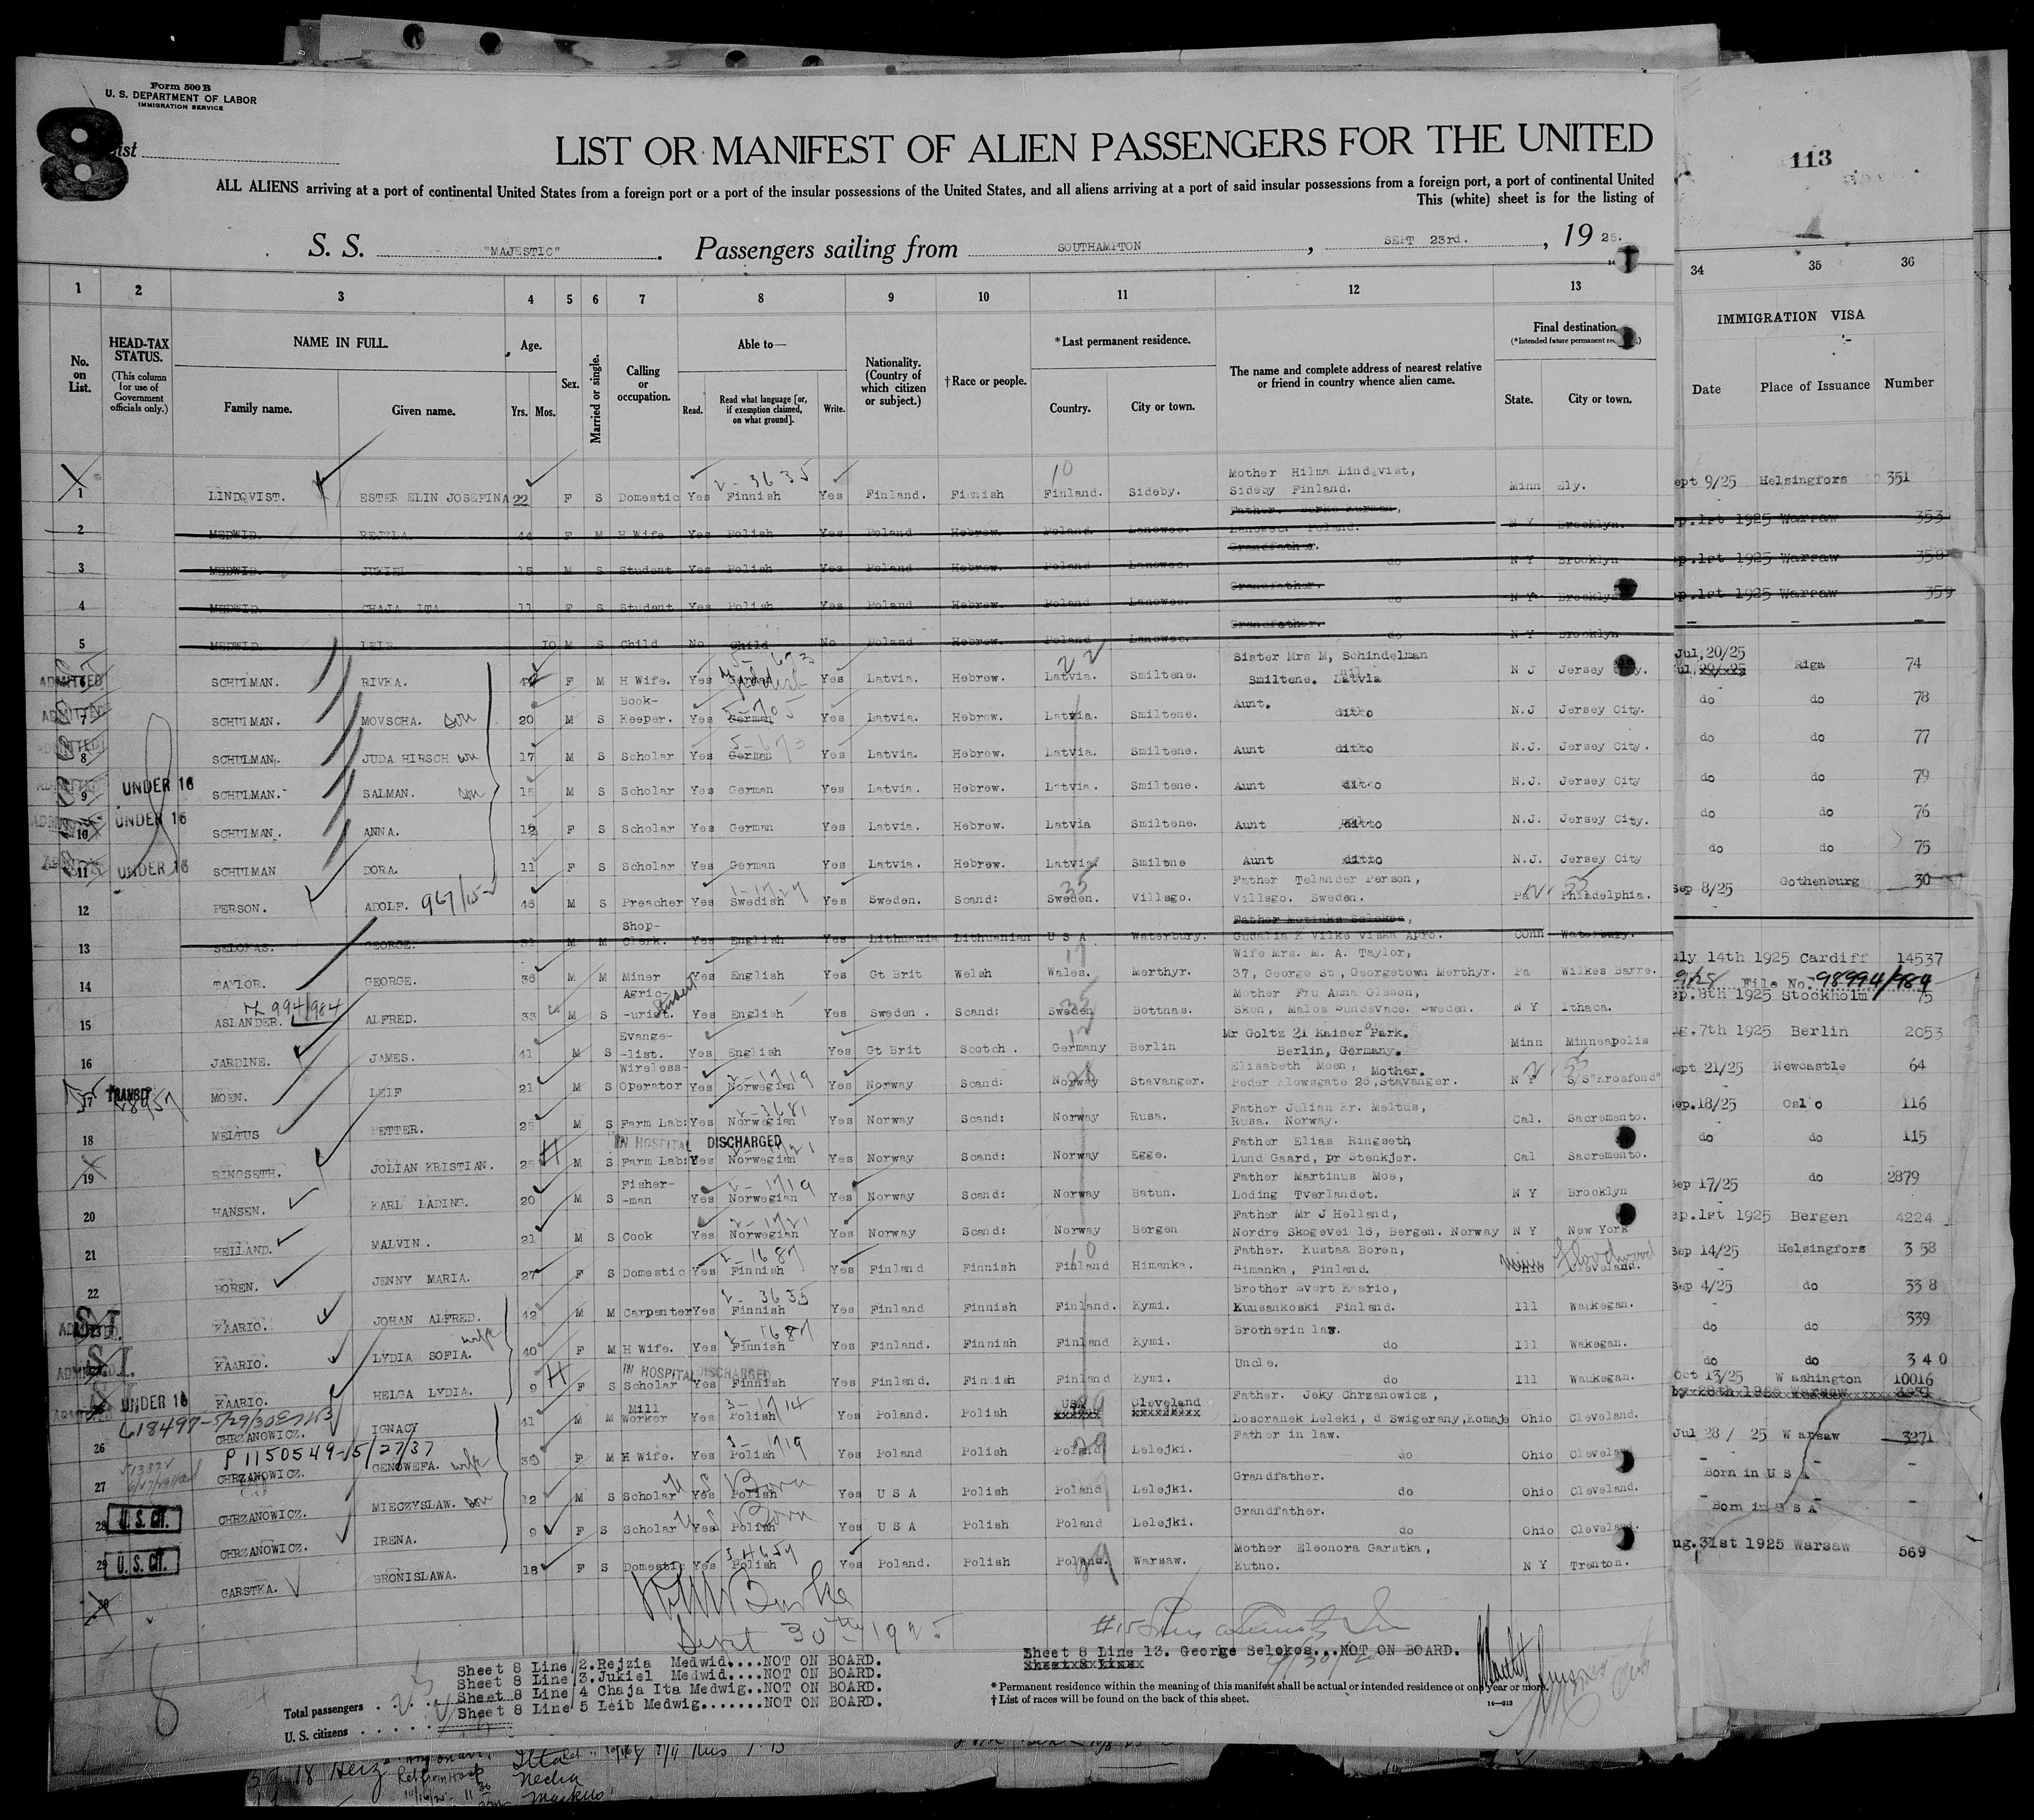 Form 500 B
U. S. DEPARTMENT OF LABOR
IMMIGRATION SERVICE
8
List
LIST OR MANIFEST OF ALIEN PASSENGERS FOR THE UNITED
113
ALL ALIENS arriving at a port of continental United States from a foreign port or a port of the insular possessions of the United States, and all aliens arriving at a port of said insular possessions from a foreign port, a port of continental United
This (white) sheet is for the listing of
S. S. "MAJESTIC". Passengers sailing from SOUTHAMPTON, SEPT 23rd., 19 25.
1 2 3 4 5 6 7 8 9 10 11 12 13 34 35 36
No. on List.
HEAD-TAX STATUS. (This column for use of Government officials only.)
NAME IN FULL.
Family name. Given name.
Age.
Yrs. Mos.
Sex.
Married or single.
Calling or occupation.
Able to—
Read. Read what language [or, if exemption claimed, on what ground]. Write.
Nationality. (Country of which citizen or subject.)
† Race or people.
* Last permanent residence.
Country. City or town.
The name and complete address of nearest relative or friend in country whence alien came.
Final destination.
State. City or town.
IMMIGRATION VISA
Date Place of Issuance Number
1 LINDQVIST. ESTER ELIN JOSEFINA 22 F S Domestic Yes 2-3635 Finnish Yes Finland. Finnish 10 Finland. Sideby. Mother Hilma Lindqvist, Sideby Finland. Minn Ely. ept 9/25 Helsingfors 351
2 MEDWID. REJZLA 44 F M H Wife Yes Polish Yes Poland Hebrew. Poland Lanowce. Lanowce. Poland. N Y Brooklyn. ep.1st 1925 Warsaw 353
3 MEDWID. JUKIEL 15 M S Student Yes Polish Yes Poland Hebrew. Poland Lanowce. Grandfather. do N Y Brooklyn ep.1st 1925 Warsaw 358
4 MEDWID. CHAJA ITA 11 F S Student Yes Polish Yes Poland Hebrew. Poland Lanowce. Grandfather. do N Y Brooklyn ep.1st 1925 Warsaw 359
5 MEDWID. LEIB 10 M S Child No Child No Poland Hebrew. Poland Lanowce. Grandfather. do N Y Brooklyn - - -
ADMITTED 6 SCHULMAN. RIVKA. F M H Wife. Yes Yiddish Yes Latvia. Hebrew. 22 Latvia. Smiltene. Sister Mrs M, Schindelman Smiltene. Latvia N J Jersey City. Jul, 20/25 Riga 74
ADMITTED 7 SCHULMAN. MOVSCHA. son 20 M S Book-Keeper. Yes German Yes Latvia. Hebrew. Latvia. Smiltene. Aunt. ditto N.J Jersey City. do do 78
ADMITTED 8 SCHULMAN. JUDA HIRSCH son 17 M S Scholar Yes German Yes Latvia. Hebrew. Latvia. Smiltene. Aunt ditto N.J. Jersey City. do do 77
ADMITTED 9 UNDER 16 SCHULMAN. SALMAN. son 15 M S Scholar Yes German Yes Latvia. Hebrew. Latvia. Smiltene. Aunt ditto N.J. Jersey City do do 79
ADMITTED 10 UNDER 16 SCHULMAN. ANNA. 12 F S Scholar Yes German Yes Latvia. Hebrew. Latvia Smiltene. Aunt ditto N.J. Jersey City. do do 76
11 UNDER 16 SCHULMAN DORA. 11 F S Scholar Yes German Yes Latvia. Hebrew. Latvia Smiltene Aunt ditto N.J. Jersey City do do 75
12 PERSON. ADOLF. 967/15 46 M S Preacher Yes Swedish Yes Sweden. Scand: 35 Sweden. Villsgo. Father Telander Person, Villsgo. Sweden. Pa Philadelphia. Sep 8/25 Gothenburg 30
13 SELOKAS. GEORGE. 31 M M Shop-Clerk. Yes English Yes Lithuania Lithuanian U S A Waterbury. Conn Waterbury.
14 TAYLOR. GEORGE. 36 M M Miner Yes English Yes Gt Brit Welsh 17 Wales. Merthyr. Wife Mrs. M. A. Taylor, 37, George St, Georgetown Merthyr. Pa Wilkes Barre. uly 14th 1925 Cardiff 14537
15 994/984 ASLANDER. ALFRED. 33 M S Agric-urist. Student Yes English Yes Sweden. Scand: 35 Sweden Bottnas. Mother Fru Anna Olsson, Skon, Malos Sundsvace. Sweden. N Y Ithaca. File No. 98994/984 ep.8th 1925 Stockholm 75
16 JARDINE. JAMES. 41 M S Evange--list. Yes English Yes Gt Brit Scotch. Germany Berlin Mr Goltz 21 Kaiser Park. Berlin, Germany. Minn Minneapolis ug.7th 1925 Berlin 2053
17 TRANSIT MOEN. LEIF 21 M S Wireless-Operator Yes 2-1719 Norwegian Yes Norway Scand: Norway Stavanger. Elisabeth Moen, Mother. Peder Klowsgate 26, Stavanger. N Y S/S"Krosfond" ept 21/25 Newcastle 64
18 MELTUS PETTER. 25 M S Farm Lab: Yes 2-3681 Norwegian Yes Norway Scand: Norway Rusa. Father Julian Kr. Meltus, Rusa. Norway. Cal. Sacremento. ep.18/25 Oslo 116
19 RINGSETH. JOLIAN KRISTIAN. 25 H M S IN HOSPITAL DISCHARGED Farm Lab: Yes Norwegian Yes Norway Scand: Norway Egge. Father Elias Ringseth Lund Gaard, pr Stenkjer. Cal Sacremento. do do 115
20 HANSEN. KARL LADING. 20 M S Fisher--man Yes 2-1719 Norwegian Yes Norway Scand: Norway Batun. Father Martinus Moe, Loding Tverlandet. N Y Brooklyn Sep 17/25 do 2879
21 HELLAND. MALVIN. 21 M S Cook Yes 2-1721 Norwegian Yes Norway Scand: Norway Bergen Father Mr J Helland, Nordre Skogevei 18, Bergen. Norway N Y New York ep.1st 1925 Bergen 4224
22 BOREN. JENNY MARIA. 27 F S Domestic Yes 2-1687 Finnish Yes Finland Finnish 10 Finland Himanka. Father. Kustaa Boren, Himanka, Finland. Minn Floodwood Ohio Cleveland. Sep 14/25 Helsingfors 358
SI ADMITTED. 23 KAARIO. JOHAN ALFRED. 42 M M Carpenter Yes 2-3635 Finnish Yes Finland Finnish Finland. Kymi. Brother Evert Kaario, Kuusankoski Finland. Ill Waukegan. Sep 4/25 do 338
SI. ADMITTED 24 KAARIO. LYDIA SOFIA. wife 40 F M H Wife. Yes 2-1687 Finnish Yes Finland. Finnish Finland Kymi. Brotherin law. do Ill Wakegan. do do 339
ADMITTED UNDER 16 KAARIO. HELGA LYDIA. 9 H F S IN HOSPITAL DISCHARGED Scholar Yes Finnish Yes Finland. Finnish Finland Kymi. Uncle. do Ill Waukegan. do do 340
26 618497-5/29/30 CHRZANOWICZ. IGNACY 41 M M Mill Worker Yes 3-1714 Polish Yes Poland. Polish USA Cleveland Father. Jeky Chrzanowicz, Loscranek Leleki, d Swigerany, Komaje Ohio Cleveland. Oct 13/25 Washington 10016
27 P 1150549-15/27/37 CHRZANOWICZ. GENOWEFA. wife 39 F M H Wife. Yes 3-1719 Polish Yes Poland Polish Poland Lelejki. Father in law. do Ohio Cleveland Jul 28/ 25 Warsaw 3271
28 U.S. CIT. CHRZANOWICZ. MIECZYSLAW. son 12 M S Scholar US Born Yes Polish Yes U S A Polish Poland Lelejki. Grandfather. do Ohio Cleveland. - Born in U S A - -
29 U.S. CIT. CHRZANOWICZ. IRENA. 9 F S Scholar US Born Yes Polish Yes U S A Polish Poland Lelejki. Grandfather. do Ohio Cleveland. - Born in U S A -
30 GARSTKA. BRONISLAWA. 18 F S Domestic Yes Polish Yes Poland. Polish Poland. Warsaw. Mother Eleonora Garstka, Kutno. N Y Trenton. ug.31st 1925 Warsaw 569
Sept 30th 1925
Sheet 8 Line 2.Rejzia Medwid....NOT ON BOARD.
Sheet 8 Line 3.Jukiel Medwid....NOT ON BOARD.
Sheet 8 Line 4 Chaja Ita Medwig..NOT ON BOARD.
Sheet 8 Line 5 Leib Medwig.......NOT ON BOARD.
Sheet 8 Line 13. George Selokos...NOT ON BOARD.
Total passengers
U. S. citizens
* Permanent residence within the meaning of this manifest shall be actual or intended residence of one year or more.
† List of races will be found on the back of this sheet.
14—313